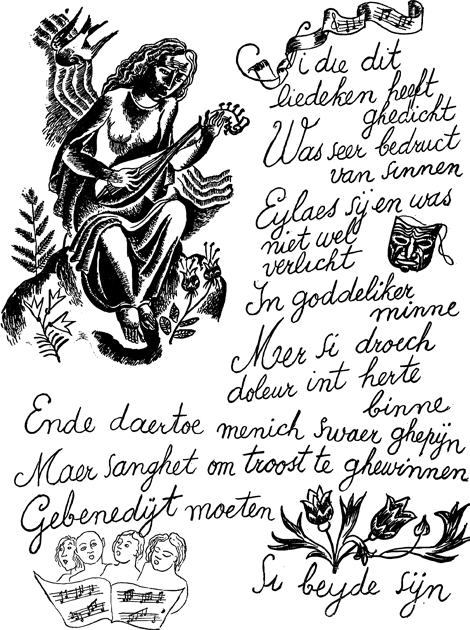 Si die dit
liedeken heeft
ghedicht
Was seer bedruct
van sinnen
Eylaes sij en was
niet wel
verlicht
In goddeliker
minne
Mer si droech
doleur int herte
binne
Ende daertoe menich swaer ghepijn
Maer sanghet om troost te ghewinnen
Gebenedijt moeten
Si beyde sijn